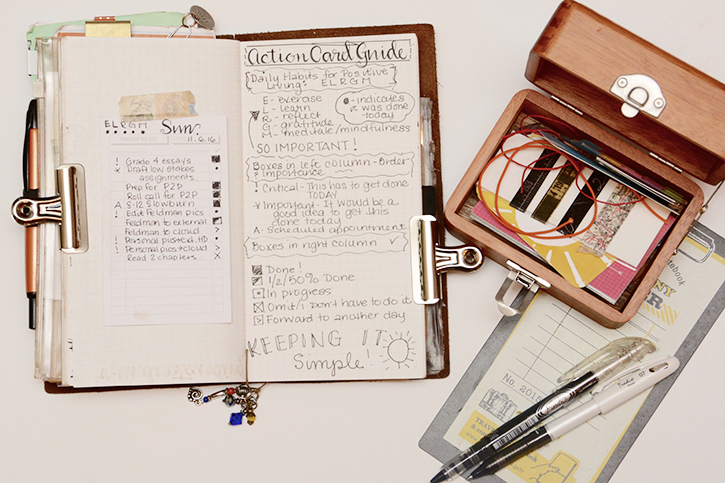 ELRGM
Sun.
11.6.16
! Grade 4 essays
* Draft low stakes
assignments
Prep for P2P
Roll call for P2P
A S-12 Slowburn
! Edit Feldman pics
Feldman to external
Feldman to cloud
! Personal pics
! Personal pics → cloud
Read 2 chapters
Action Card Guide
Daily Habits for Positive
Living: ELRGM
E- exercise
L - learn
R - reflect
G - gratitude
M- meditate/mindfulness
- indicates
it was done
today
SO IMPORTANT!
Boxes in left column - Order
+ Importance
! Critical - This has to get done
TODAY
* Important - It would be a
good idea to get this
done today
A - Scheduled appointment
Boxes in right column
Done!
1/2/50% Done
In progress
Omit/I don't have to do it
Forward to another day
KEEPING IT
Simple!
No.